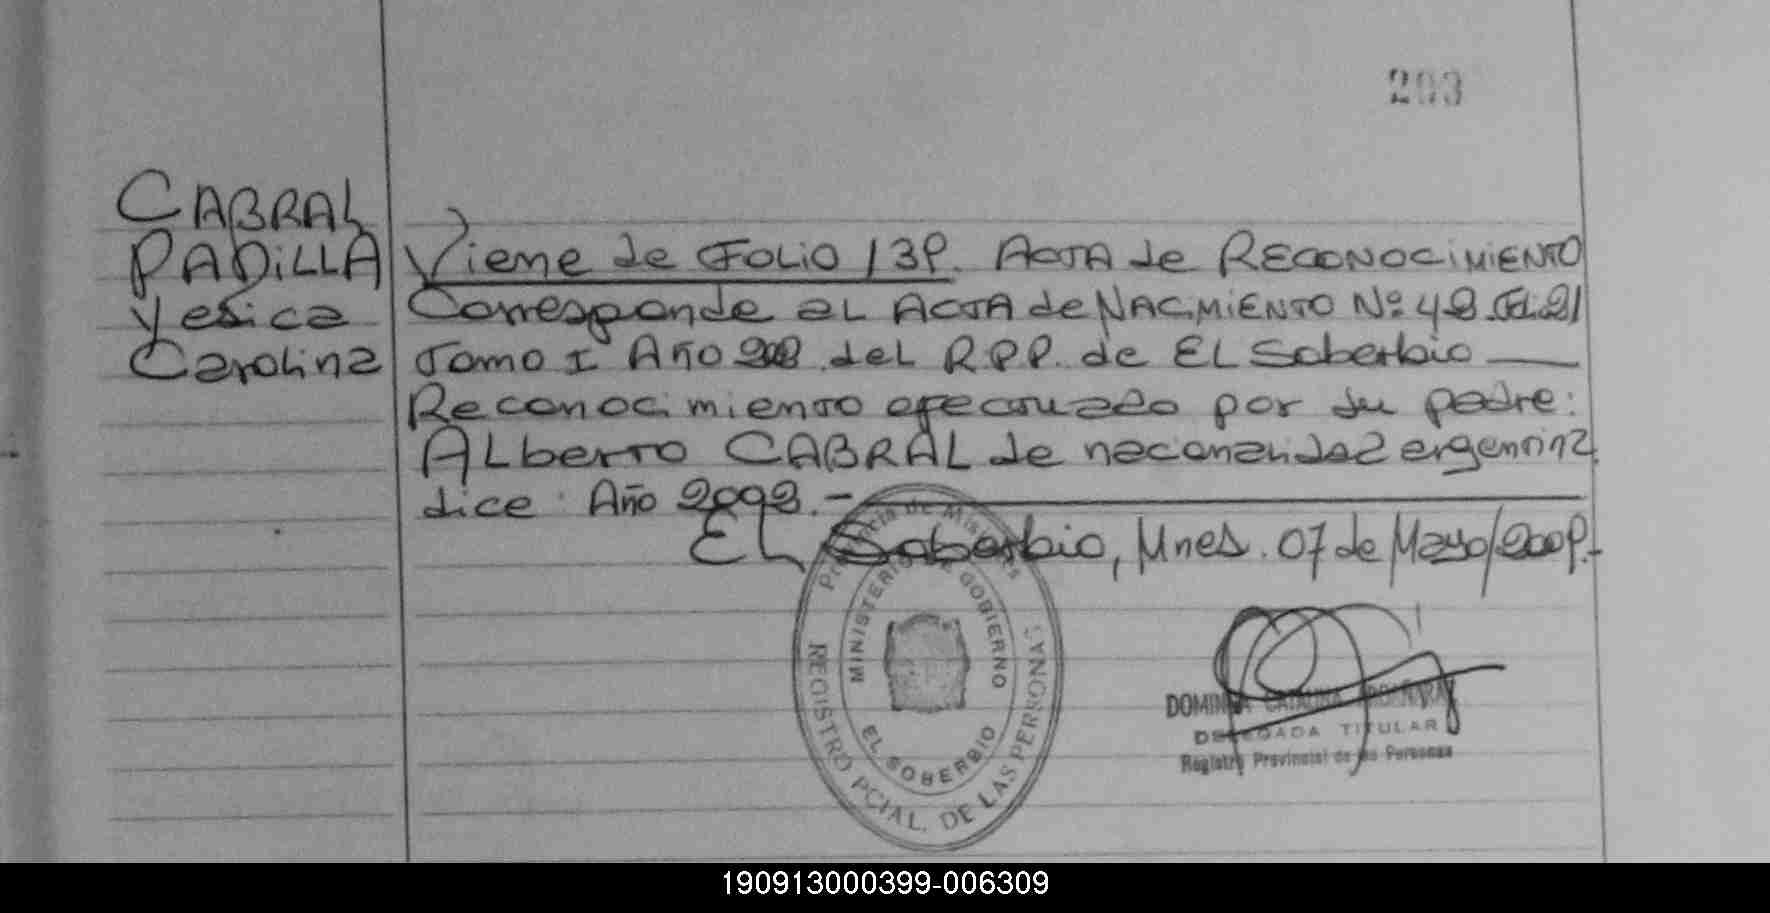 203
CABRAL
PADiLLA
Yesica
Carolina
Viene de FOLiO 139. ACTA de RECONOCiMiENTO
Corresponde al ACTA de NACiMiENTO Nº 48
Tomo I Año del R.P.P. de EL Soberbio
Reconocimiento efectuado por su padre:
ALberto CABRAL de nacionalidad argentina
dice: Año 2002.-
EL Soberbio, Mnes. 07 de Mayo/2009.-
Provincia de Misiones
MINISTERIO DE GOBIERNO
EL SOBERBIO
REGISTRO PCIAL. DE LAS PERSONAS
CATALINA
DELEGADA TITULAR
Registro Provincial de las Personas
190913000399-006309